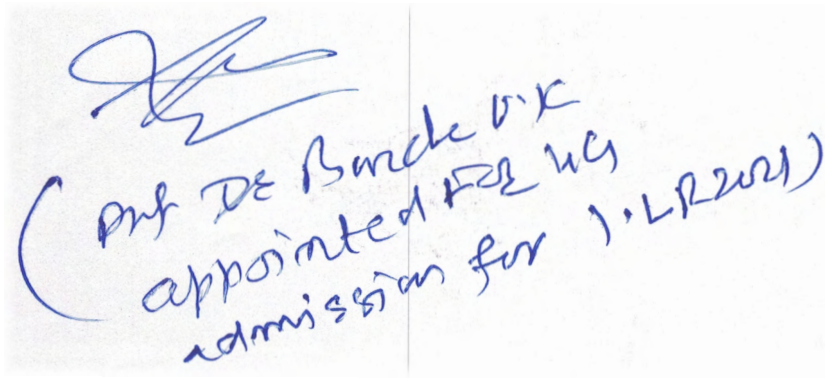 (Prof DE Barde V.K
appointed FOR UG
admission for J.LR2021)